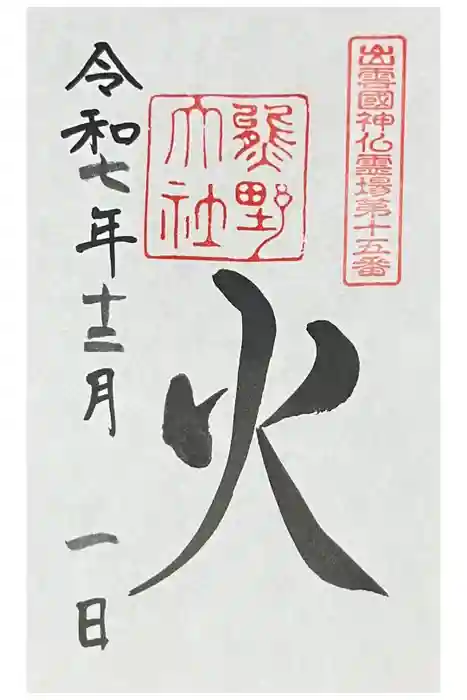 出雲國神仏霊場第十五番
熊野
大社
火
令和七年十二月一日